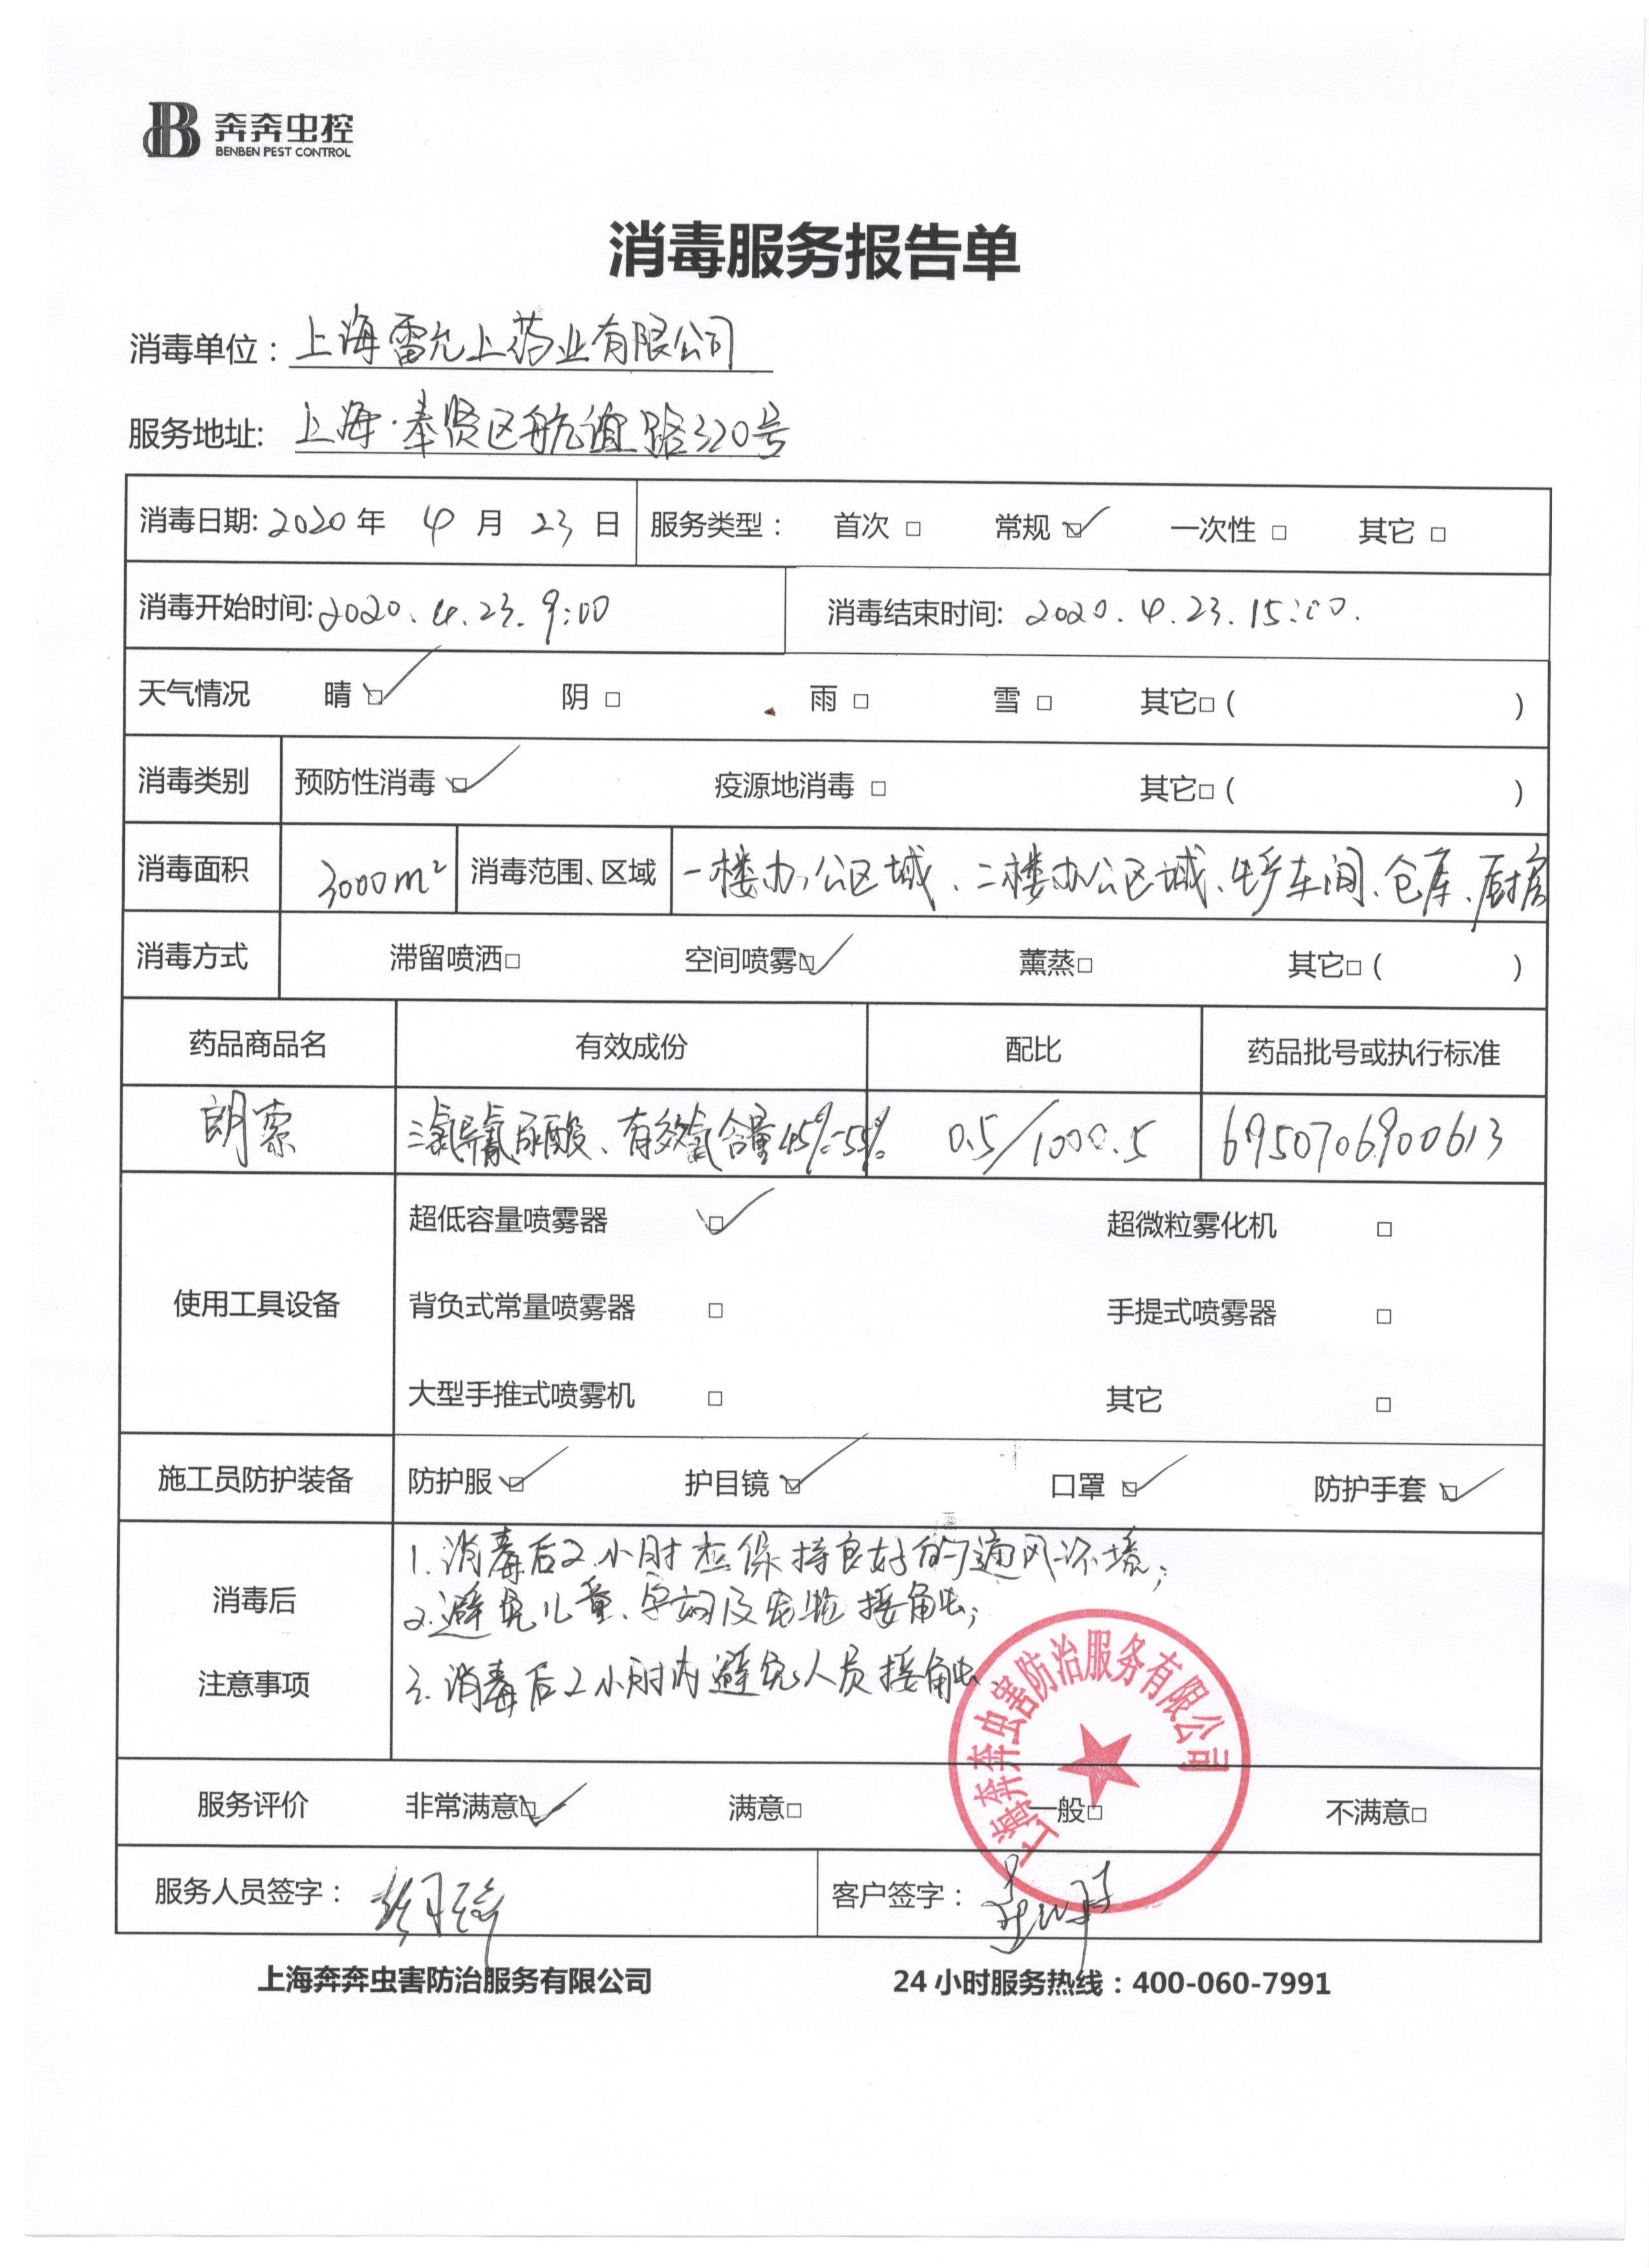 奔奔虫控
BENBEN PEST CONTROL
消毒服务报告单
消毒单位：上海雷允上药业有限公司
服务地址: 上海·奉贤区航谊路320号
消毒日期: 2020 年 4 月 23 日 服务类型： 首次 □ 常规 ☑ 一次性 □ 其它 □
消毒开始时间: 2020.4.23. 9:00 消毒结束时间: 2020.4.23.15:00.
天气情况 晴 ☑ 阴 □ 雨 □ 雪 □ 其它□ ( )
消毒类别 预防性消毒 ☑ 疫源地消毒 □ 其它□ ( )
消毒面积 3000m² 消毒范围、区域 一楼办公区域、二楼办公区域、生产车间、仓库、厨房
消毒方式 滞留喷洒□ 空间喷雾☑ 薰蒸□ 其它□ ( )
药品商品名 有效成份 配比 药品批号或执行标准
朗索 三氯异氰尿酸、有效氯含量45%-55% 0.5/1000.5 6950706900613
使用工具设备
超低容量喷雾器 ☑ 超微粒雾化机 □
背负式常量喷雾器 □ 手提式喷雾器 □
大型手推式喷雾机 □ 其它 □
施工员防护装备 防护服 ☑ 护目镜 ☑ 口罩 ☑ 防护手套 ☑
消毒后
注意事项
1.消毒后2小时应保持良好的通风环境;
2.避免儿童、孕妇及宠物接触;
3.消毒后2小时内避免人员接触
上海奔奔虫害防治服务有限公司
服务评价 非常满意☑ 满意□ 一般□ 不满意□
服务人员签字： 客户签字：
上海奔奔虫害防治服务有限公司 24 小时服务热线：400-060-7991